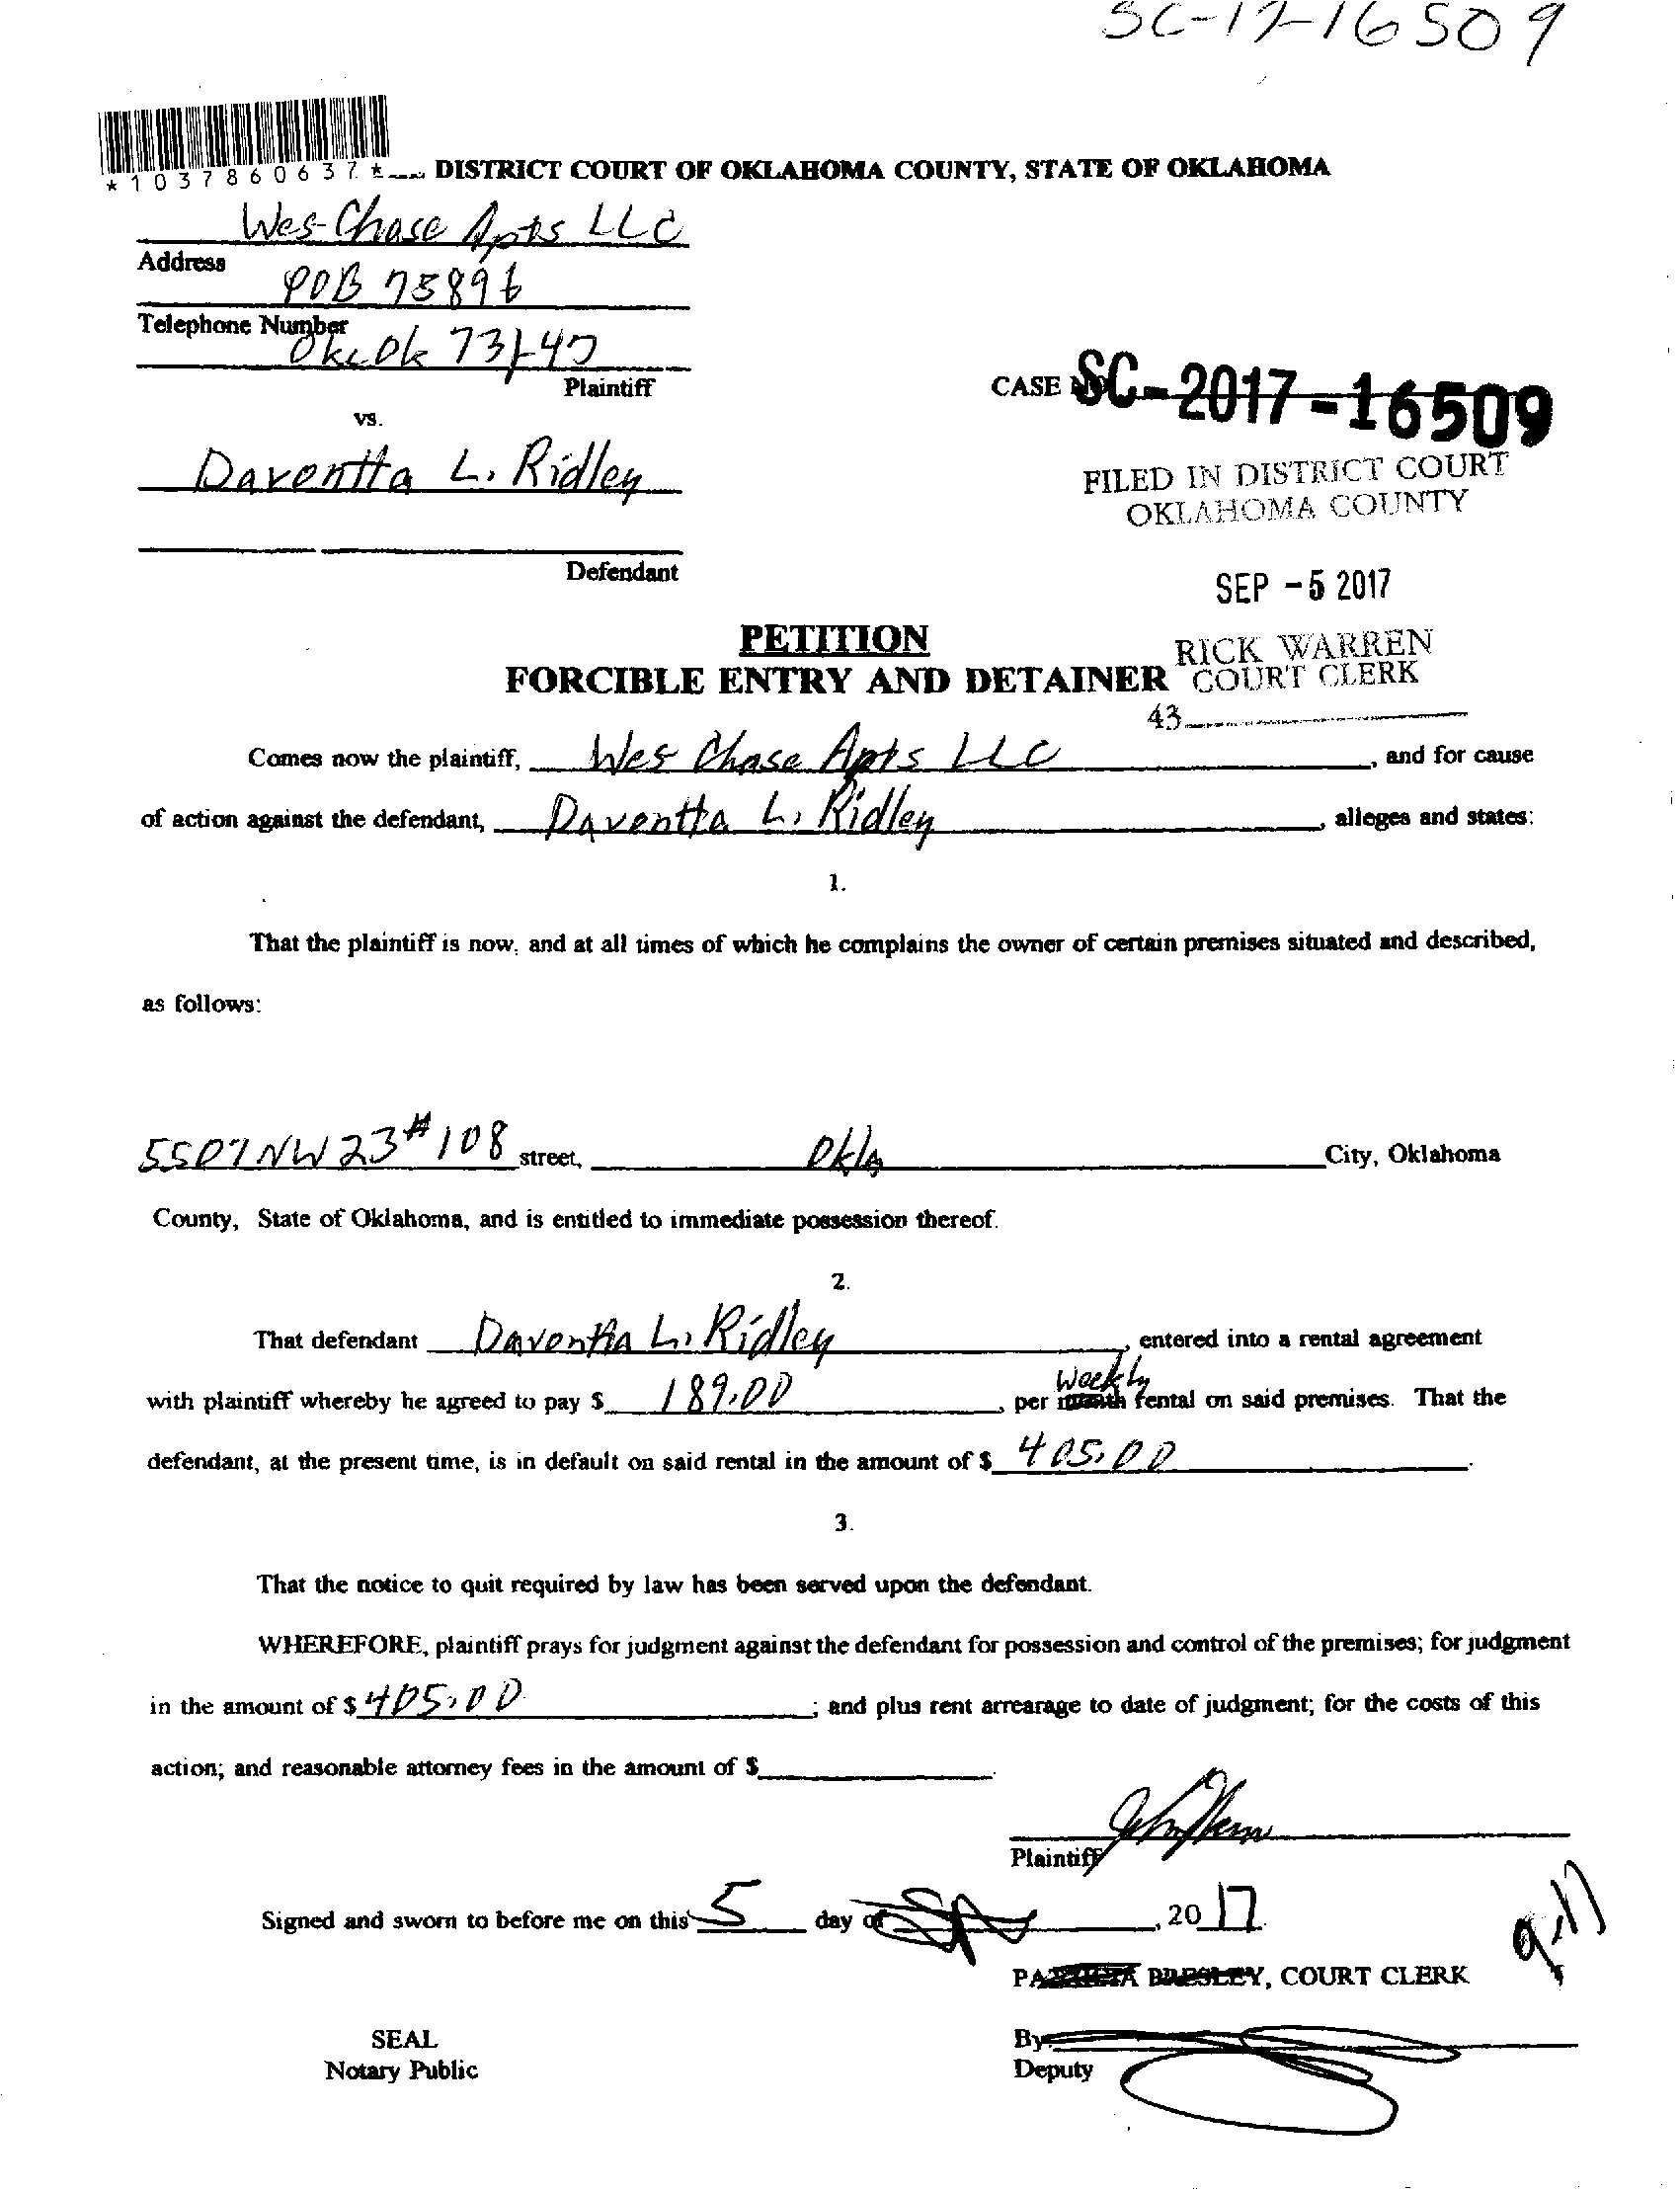 SC-17-16509
*1037860637*
DISTRICT COURT OF OKLAHOMA COUNTY, STATE OF OKLAHOMA
Wes-Chase Apts LLC
Address
POB 75896
Telephone Number
Okc Ok 73147
Plaintiff
CASE NO.
SC-2017-16509
vs.
Daventta L. Ridley
FILED IN DISTRICT COURT
OKLAHOMA COUNTY
Defendant
SEP -5 2017
PETITION
RICK WARREN
FORCIBLE ENTRY AND DETAINER
COURT CLERK
43
Comes now the plaintiff, Wes Chase Apts LLC, and for cause
of action against the defendant, Daventta L. Ridley, alleges and states:
1.
That the plaintiff is now, and at all times of which he complains the owner of certain premises situated and described,
as follows:
5507 NW 23 #108 street, Okla City, Oklahoma
County, State of Oklahoma, and is entitled to immediate possession thereof.
2.
That defendant Daventta L. Ridley, entered into a rental agreement
Weekly
with plaintiff whereby he agreed to pay $ 189.00, per month rental on said premises. That the
defendant, at the present time, is in default on said rental in the amount of $ 405.00.
3.
That the notice to quit required by law has been served upon the defendant.
WHEREFORE, plaintiff prays for judgment against the defendant for possession and control of the premises; for judgment
in the amount of $ 405.00; and plus rent arrearage to date of judgment; for the costs of this
action; and reasonable attorney fees in the amount of $
Plaintiff
Signed and sworn to before me on this 5 day of , 20 17
9-17
PATRICIA PRESLEY, COURT CLERK
SEAL
By
Notary Public
Deputy